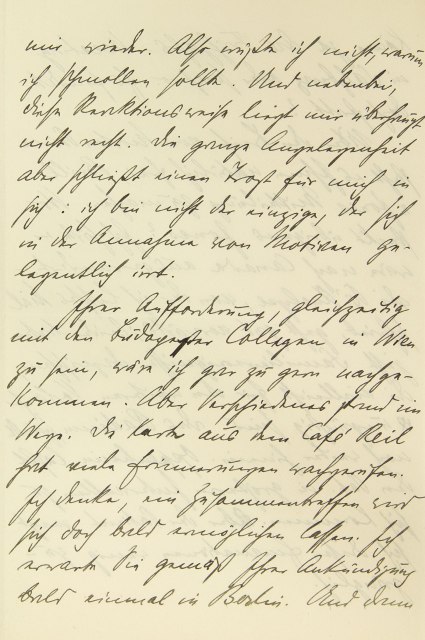 mir wieder. Also wüßte ich nicht, warum
ich schmollen sollte. Und nebenbei,
diese Reaktionsweise liegt mir überhaupt
nicht recht. Die ganze Angelegenheit
aber schließt einen Trost für mich in
sich: ich bin nicht der einzige, der sich
in der Annahme von Motiven ge-
legentlich irrt.
Ihrer Aufforderung, gleichzeitig
mit den Budapester Collegen in Wien
zu sein, wäre ich gar zu gern nachge-
kommen. Aber Verschiedenes stand im
Wege. Die Karte aus dem Café Reil
hat viele Erinnerungen wachgerufen.
Ich denke, ein Zusammentreffen wird
sich doch bald ermöglichen lassen. Ich
erwarte Sie gemäß Ihrer Ankündigung
bald einmal in Berlin. Und dann